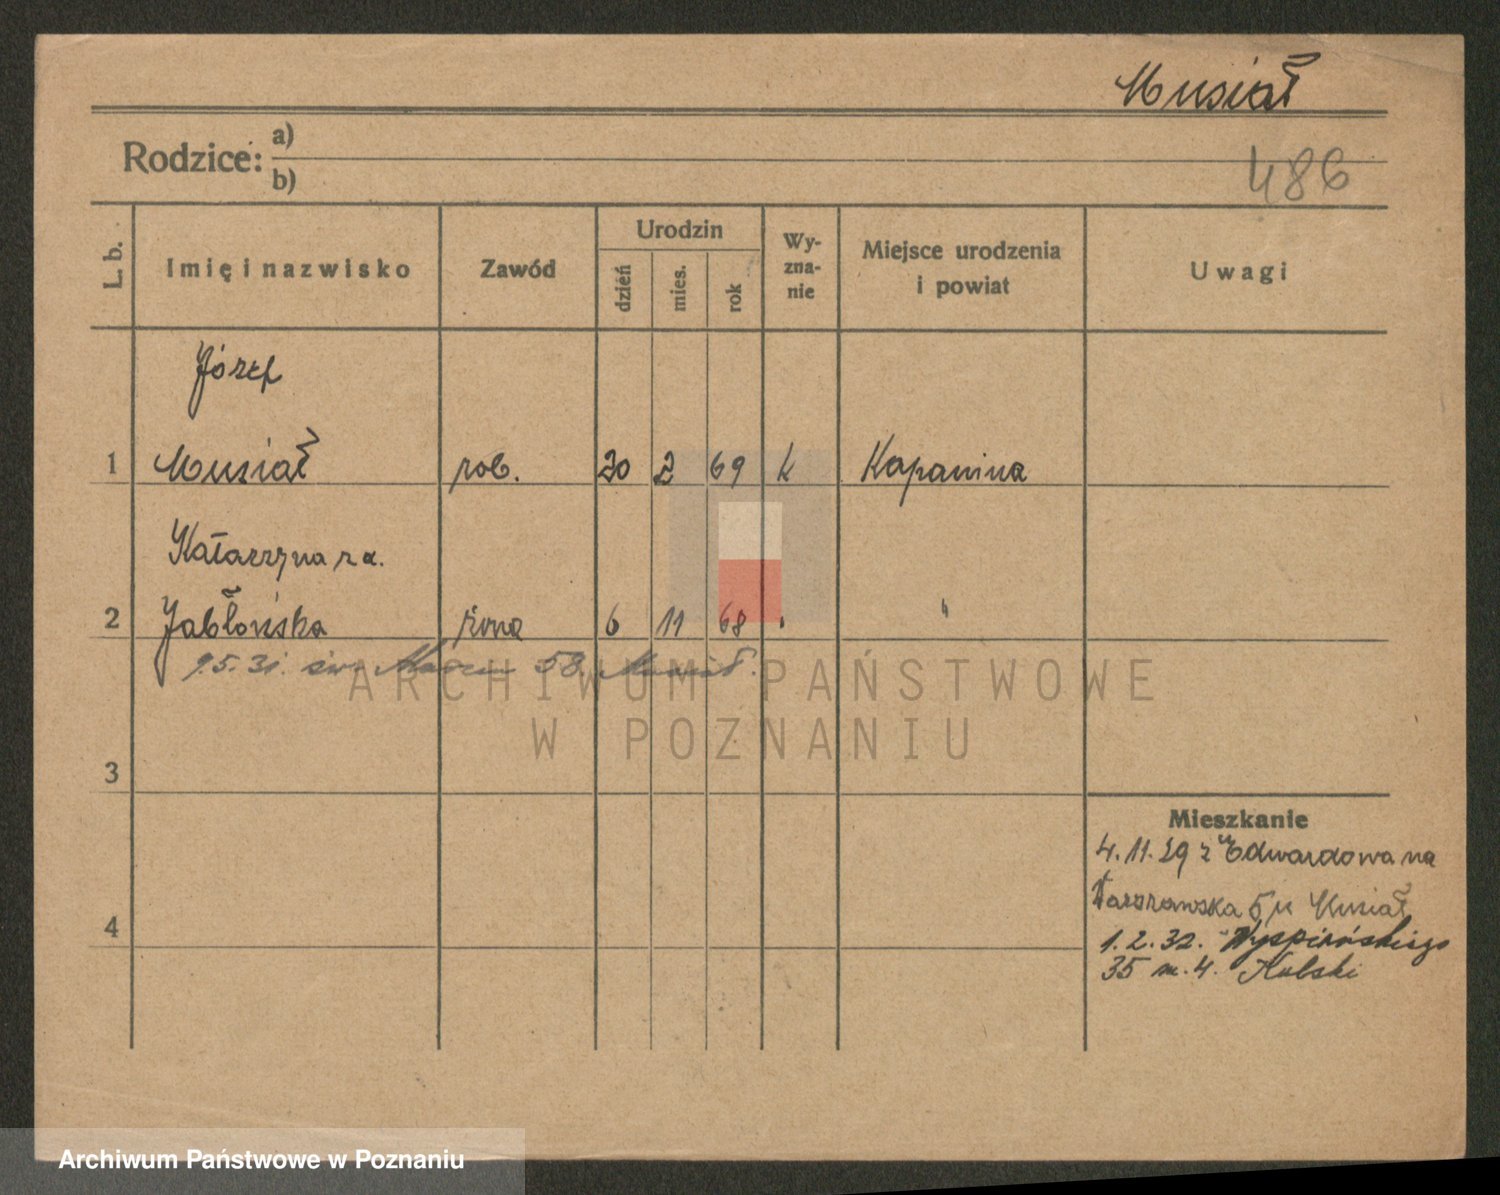 Musiał
Rodzice: a)
b)
486
L. b.
Imię i nazwisko
Zawód
Urodzin
dzień
mies.
rok
Wy-
zna-
nie
Miejsce urodzenia
i powiat
Uwagi
Józef
1 Musiał rob. 20 2 69 k Kopanina
Katarzyna z d.
2 Jabłońska żona 6 11 68 " "
9.5.31. św. Marcin 58. Musiał.
3
4
Mieszkanie
4.11.29 z Edwardowa na
Warszawska 5 u Musiał
1.2.32. Wyspiańskiego
35 m. 4. Kolski
ARCHIWUM PAŃSTWOWE
W POZNANIU
Archiwum Państwowe w Poznaniu